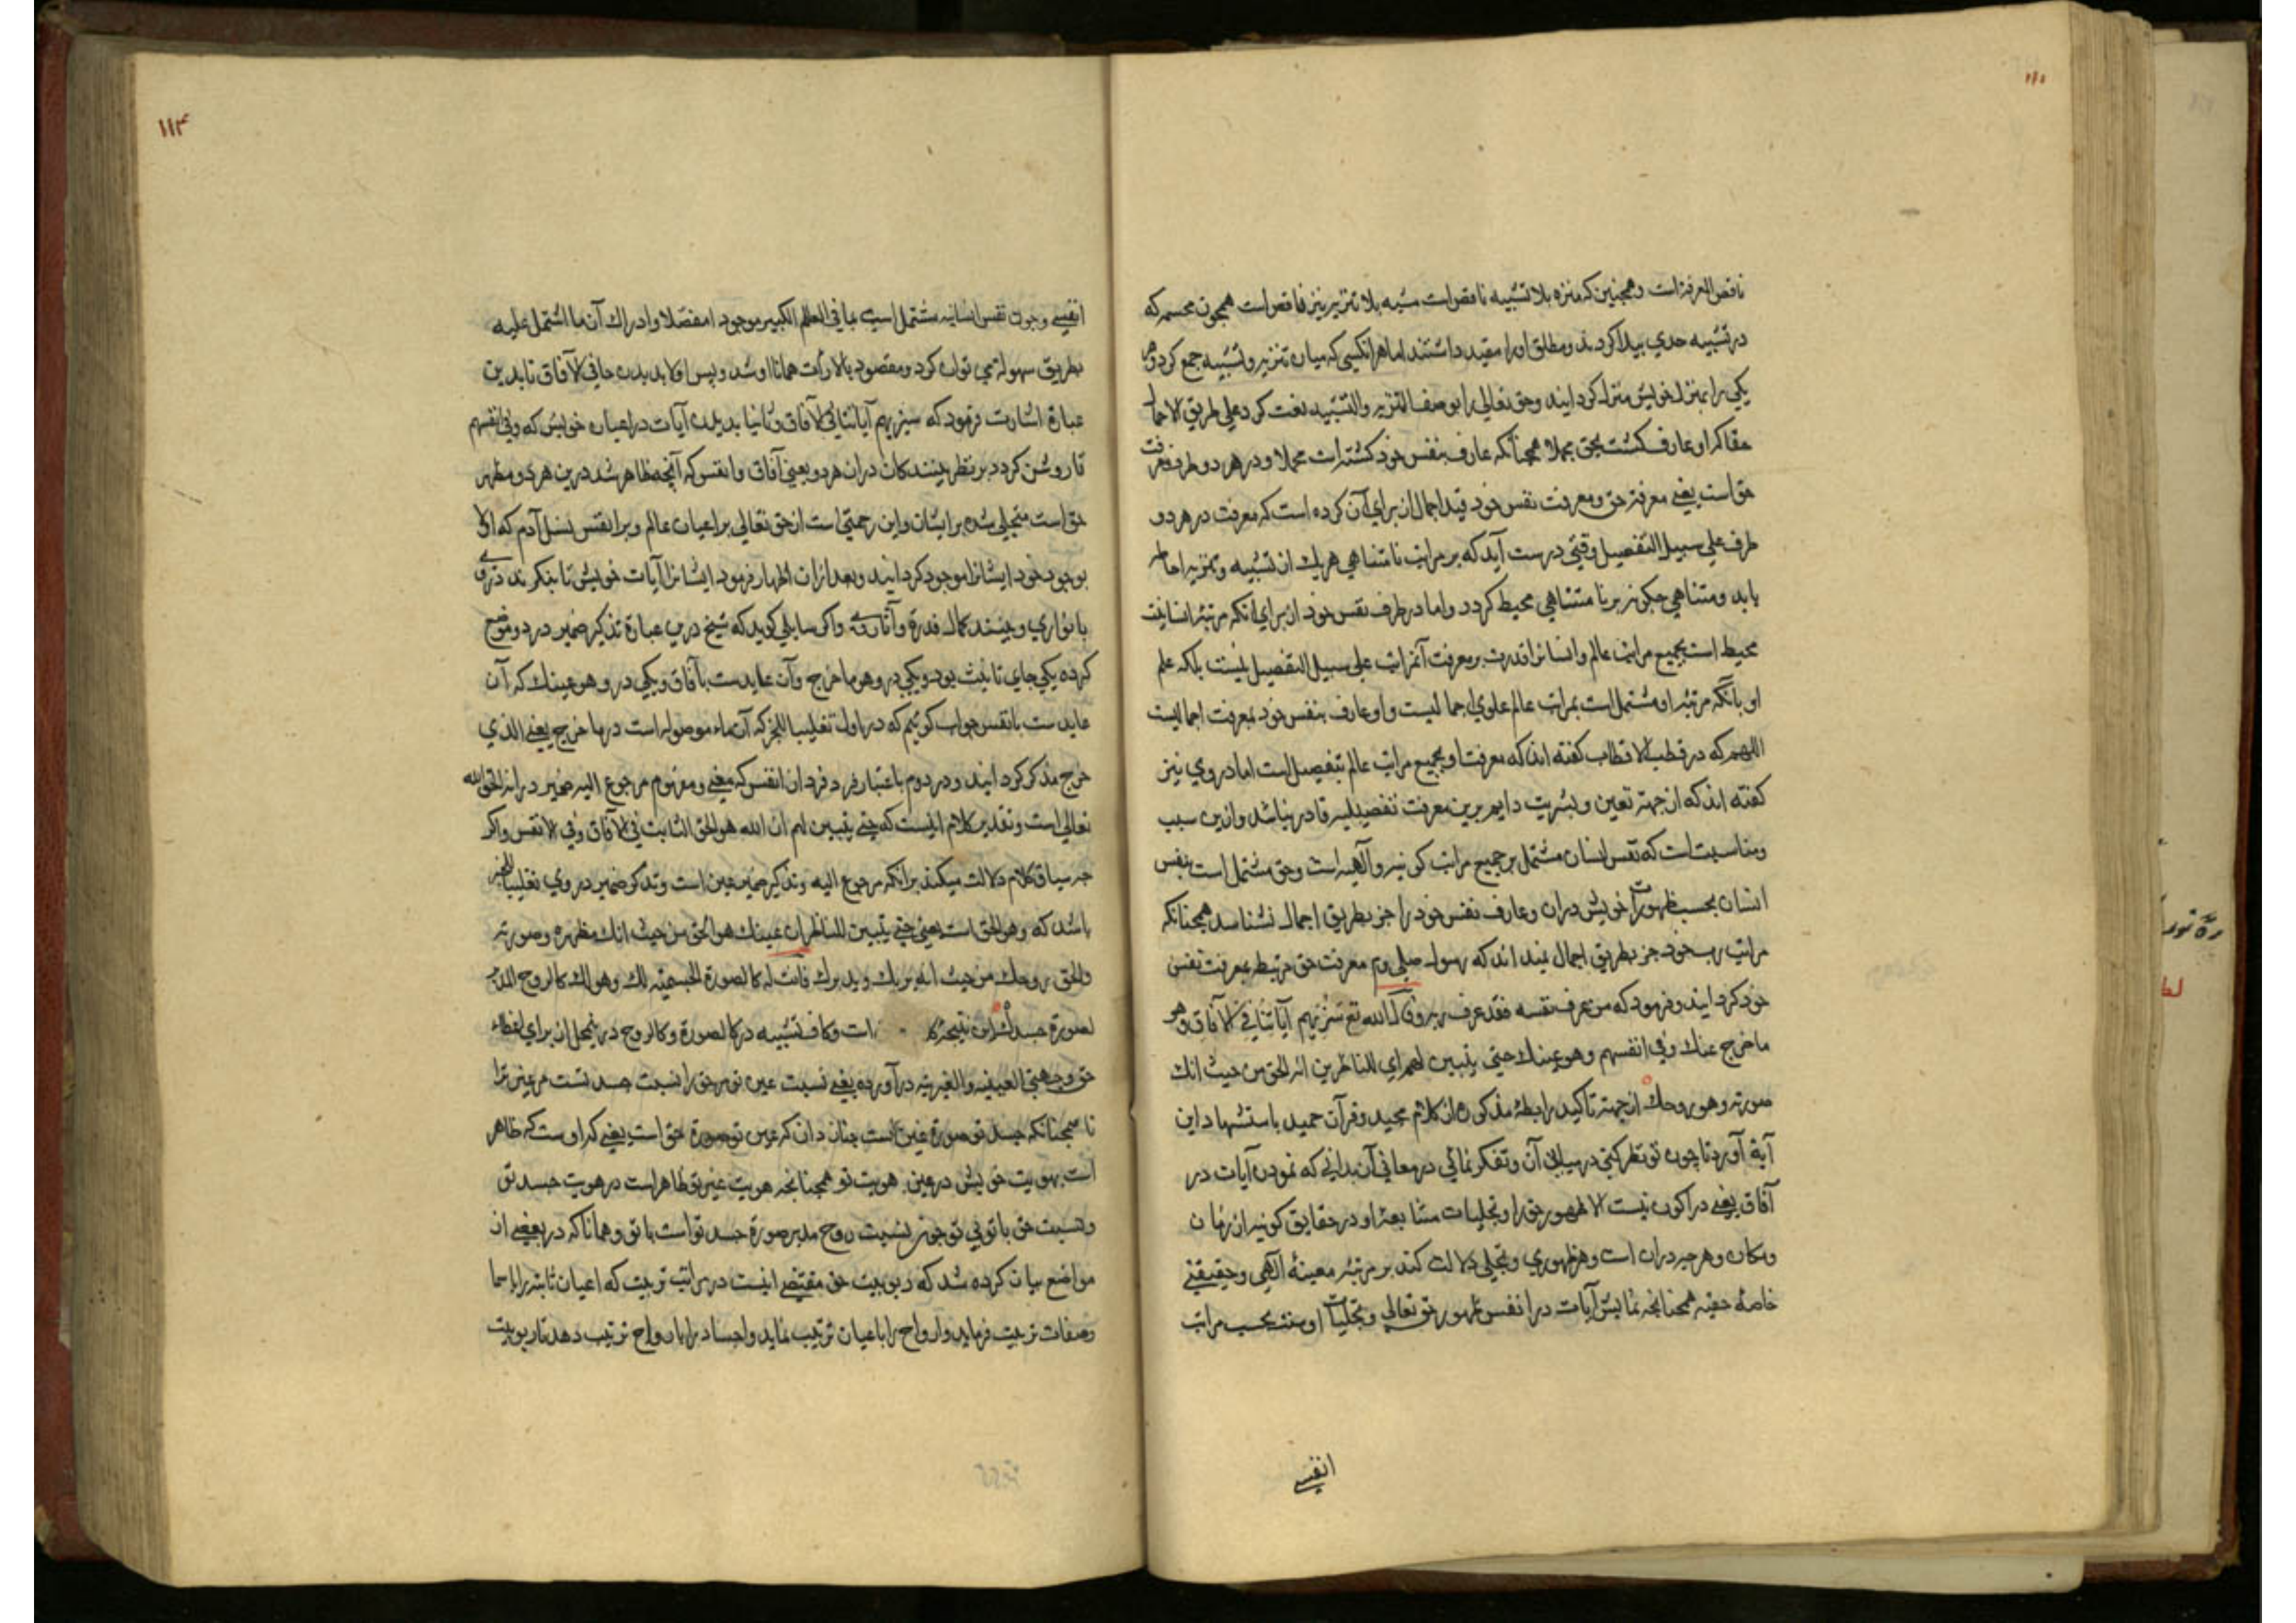 ناقص المعرفة است وهمچنین که منزه بلا تشبیه ناقص است مشبه بلا تنزیه نیز ناقص است همچون مجسمه که
در تشبیه حدی پیدا کردند ومطلق اورا مقید داشتند اما هر انکسی که میان تنزیه وتشبیه جمع کرد وهر
یکی را بمنزله خویش منزل کردانید وحق تعالی را بوصف التنزیه والتشبیه نعت کرد علی طریق الاجمال
حقا کر او عارف کشت بحق مجملا همچنانکه عارف بنفس خود کشته است مجملا ودر هر دو طرف معرفت
حق است یعنی معرفة حق ومعرفت نفس خود قید اجمال از برای آن کرده است که معرفت در هر دو
طرف علی سبیل التفصیل وقتی درست آید که بر مراتب نامتناهی هر یک از تشبیه وتنزیه احاطه
یابد ومتناهی چکونه بر نامتناهی محیط کردد واما در طرف نفس خود از برای انکه مرتبهٔ انسانیت
محیط است بجمیع مراتب عالم وانسانرا قدرت بر معرفت آن مراتب علی سبیل التفصیل نیست بلکه علم
او بانکه مرتبهٔ او مشتمل است بمراتب عالم علوی اجمالیست واو عارف بنفس خود بمعرفت اجمالیست
اللهم که در قطب الاقطاب کفته اند که معرفت او بجمیع مراتب عالم بتفصیل است اما در وی نیز
کفته اند که از جهة تعین وبشریت دایم برین معرفت تفصیلیه قادر نباشد وازین سبب
ومناسبت است که نفس انسان مشتمل بر جمیع مراتب کونیه وآلهیه است وحق مشتمل است بنفس
انسان بحسب ظهورات خویش دران وعارف نفس خود را جز بطریق اجمال نشناسد همچنانکه
مراتب رب خود جز بطریق اجمال نمیداند که رسول صلی وم معرفت حق مرتبط بمعرفت نفس
خود کردانید وفرمود که من عرف نفسه فقد عرف ربه وقال الله تع سنریهم آیاتنا فی الآفاق وهو
ما خرج عنك وفی انفسهم وهو عینك حتی یتبین لهم ای للناظرین انه الحق من حیث انك
صورته وهو روحك از جهة تاکید رابطهٔ مذکوره از کلام مجید وفرآن حمید باستشهاد این
آیة آورد تا چون تو نظر کنی در مبانی آن وتفکر نمائی در معانی آن بدانی که نمودن آیات در
آفاق یعنی در اکوان نیست الا ظهور حق را وتجلیات متتابعهٔ او در حقایق کونیه از زمان
ومکان وهر چه دران است وهر ظهوری وتجلی دلالت کند بر مرتبهٔ معینهٔ آلهی وحقیقتی
خاصهٔ حقیه همچنانچه نمایش آیات در انفس ظهور حق تعالی وتجلیات اوست بحسب مراتب
انفسی
انفسی وچون نفس انسانیه مشتمل است بما فی العالم الکبیر موجودا مفصلا وادراك آن ما اشتمل علیه
بطریق سهولة می توان کرد ومقصود بالارأت همانا او شد وپس اولا بدیدن ما فی الآفاق تا بدین
عبارة اشارت فرمود که سنریهم آیاتنا فی الآفاق وثانیا بدیدن آیات در اعیان خویش که وفی انفسهم
تا روشن کردد بر نظر بینندکان دران هر دو یعنی آفاق وانفس که آنچه ظاهر شد درین هر دو مظهر
حق است متجلی شده بر ایشان واین رحمتی است از حق تعالی بر اعیان عالم وبر انفس نسل آدم که اولا
بوجود خود ایشانرا موجود کردانید وبعد ازان اظهار فرمود ایشانرا آیات خویش تا بنکرند
بانواری وبینند کمال قدرة وآثار واکر سایلی کوید که شیخ درین عبارة تذکیر ضمیر در دو موضع
کرده یکی جای تانیث بود ویکی در وهو ما خرج وآن عایدست بآفاق ویکی در وهو عینك که آن
عایدست بانفس جواب کوئیم که در اول تغلیبا للخبر که آن ماء موصوله است در ما خرج یعنی الذی
خرج مذکر کردانید ودر دوم باعتبار فرد فرد از انفس که معنی ومفهوم مرجوع الیه ضمیر در انه الحق الله
تعالی است وتقدیر کلام اینست که حتی یتبین لهم ان الله هو الحق الثابت فی الآفاق وفی الانفس واکر
چه سیاق کلام دلالت میکند برانکه مرجوع الیه وتذکیر ضمیر عین است وتذکیر ضمیر در وی تغلیبا للخبر
باشد که وهو الحق است یعنی حتی یتبین للناظران عینك هو الحق من حیث انك مظهره وصورته
والحق روحك من حیث انه یربك ویدبرك فانت له کالصورة الجسمیة لك وهو لك کالروح المدبر
لصورة جسدك این نتیجهٔ است وکاف تشبیه در کالصورة وکالروح درین محل از برای
حق وجهتی العینیه والغیریه درآورده یعنی نسبت عین تو بر حق را نسبت جسد تست مر عین ترا
تا همچنانکه جسد تو صورة عین است چنان دان که عین تو صورة حق است یعنی که اوست که ظاهر
است بهویت خویش در عین هویت تو همچنانچه هویت عین تو ظاهر است در هویت جسد تو
ونسبت حق با توئی تو چون نسبت روح مدبر صورة جسد تو است با تو وهمانا که در بعضی از
مواضع بیان کرده شد که ربوبیت حق مقتضی اینست در مراتب تربیت که اعیان ثابته را باسما
وصفات تربیت فرماید وارواح را باعیان ترتیب نماید واجساد را بارواح ترتیب دهد تا ربوبیت